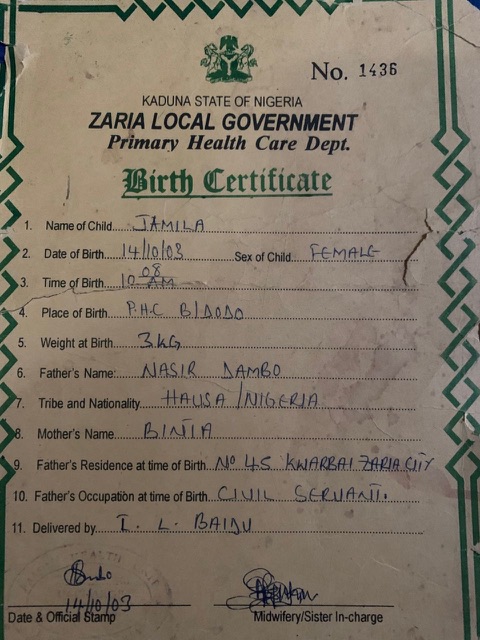 No. 1436
KADUNA STATE OF NIGERIA
ZARIA LOCAL GOVERNMENT
Primary Health Care Dept.
Birth Certificate
1. Name of Child JAMILA
2. Date of Birth 14/10/03 Sex of Child FEMALE
3. Time of Birth 10 08 AM
4. Place of Birth P.H.C B/DODO
5. Weight at Birth 3KG
6. Father's Name: NASIR DAMBO
7. Tribe and Nationality HAUSA/NIGERIA
8. Mother's Name BINTA
9. Father's Residence at time of Birth No 45 KWARBAI ZARIA CITY
10. Father's Occupation at time of Birth CIVIL SERVANT.
11. Delivered by I. L. BAIDU
14/10/03
Date & Official Stamp Midwifery/Sister In-charge